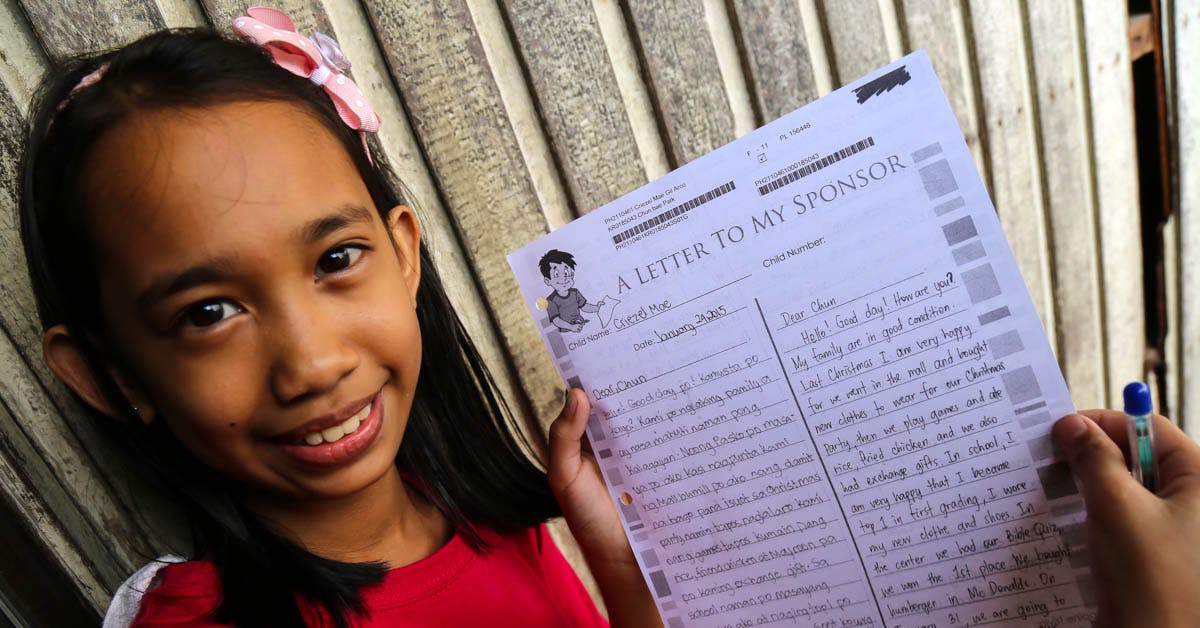 F - 11 PL 156446
PH2110461 Criezel Mae Gil Arco
KR0185043 Chun bae Park
PH2110461KR0185043S01G
PH2110461000185043
A LETTER TO MY SPONSOR
Child Name: Criezel Mae
Child Number:
Date: January 24, 2015
Dear, Chun
Good day po! Kamusta po
Kami po ng aking pamilya
ay nasa mabuti naman pong
Kalagayan. Noong Pasko po masa-
ya po ako kasi nagpunta kami
ng Mall bumili po ako nang damit
na bago para isuot sa Christmas
party namin tapos naglalaro kami
nang games tapos kumain nang
rice, fried chicken at Mayroon pa
po kaming exchange gift. Sa
school naman po masayang
ako at naging top 1 po
Dear Chun
Hello! Good day! How are you?
My family are in good condition.
Last Christmas I am very happy
for we went in the mall and bought
new clothes to wear for our Christmas
party, then we play games and ate
rice, fried chicken and we also
had exchange gifts. In school, I
am very happy that I became
top 1 in first grading, I wore
my new clothe and shoes. In
the center we had our Bible Quiz
we won the 1st place. We bought
humberger in Mc Donalds. On
31, we are going to